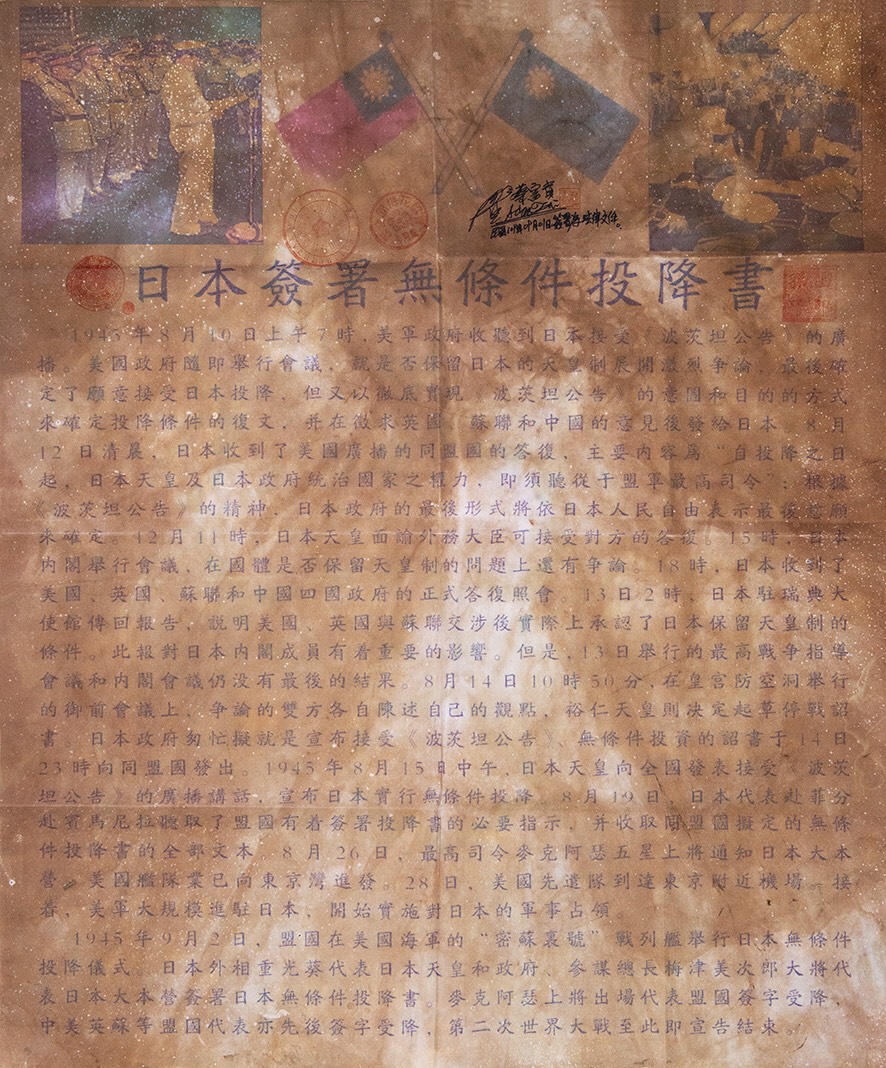 日本簽署無條件投降書
1945年8月10日上午7時,美軍政府收聽到日本接受《波茨坦公告》的廣
播。美國政府隨即舉行會議,就是否保留日本的天皇制展開激烈爭論,最後確
定了願意接受日本投降,但又以徹底實現《波茨坦公告》的意圖和目的的方式
來確定投降條件的復文,并在徵求英國、蘇聯和中國的意見後發給日本。8月
12日清晨,日本收到了美國廣播的同盟國的答復,主要内容爲“自投降之日
起,日本天皇及日本政府統治國家之權力,即須聽從于盟軍最高司令”;根據
《波茨坦公告》的精神,日本政府的最後形式將依日本人民自由表示最後意願
來確定。12日11時,日本天皇面諭外務大臣可接受對方的答復。15時,日本
内閣舉行會議,在國體是否保留天皇制的問題上還有爭論。18時,日本收到了
美國、英國、蘇聯和中國四國政府的正式答復照會。13日2時,日本駐瑞典大
使館傳回報告,説明美國、英國與蘇聯交涉後實際上承認了日本保留天皇制的
條件。此報對日本内閣成員有着重要的影響。但是,13日舉行的最高戰爭指導
會議和内閣會議仍没有最後的結果。8月14日10時50分,在皇宫防空洞舉行
的御前會議上,爭論的雙方各自陳述自己的觀點,裕仁天皇則决定起草停戰詔
書。日本政府匆忙擬就是宣布接受《波茨坦公告》、無條件投資的詔書于14日
23時向同盟國發出。1945年8月15日中午,日本天皇向全國發表接受《波茨
坦公告》的廣播講話,宣布日本實行無條件投降。8月19日,日本代表赴菲分
赴賓馬尼拉聽取了盟國有着簽署投降書的必要指示,并收取同盟國擬定的無條
件投降書的全部文本。8月26日,最高司令麥克阿瑟五星上將通知日本大本
營,美國艦隊業已向東京灣進發。28日,美國先遣隊到達東京附近機場。接
着,美軍大規模進駐日本,開始實施對日本的軍事占領。
1945年9月2日,盟國在美國海軍的“密蘇裏號”戰列艦舉行日本無條件
投降儀式。日本外相重光葵代表日本天皇和政府、參謀總長梅津美次郎大將代
表日本大本營簽署日本無條件投降書。麥克阿瑟上將出場代表盟國簽字受降,
中美英蘇等盟國代表亦先後簽字受降,第二次世界大戰至此即宣告結束。